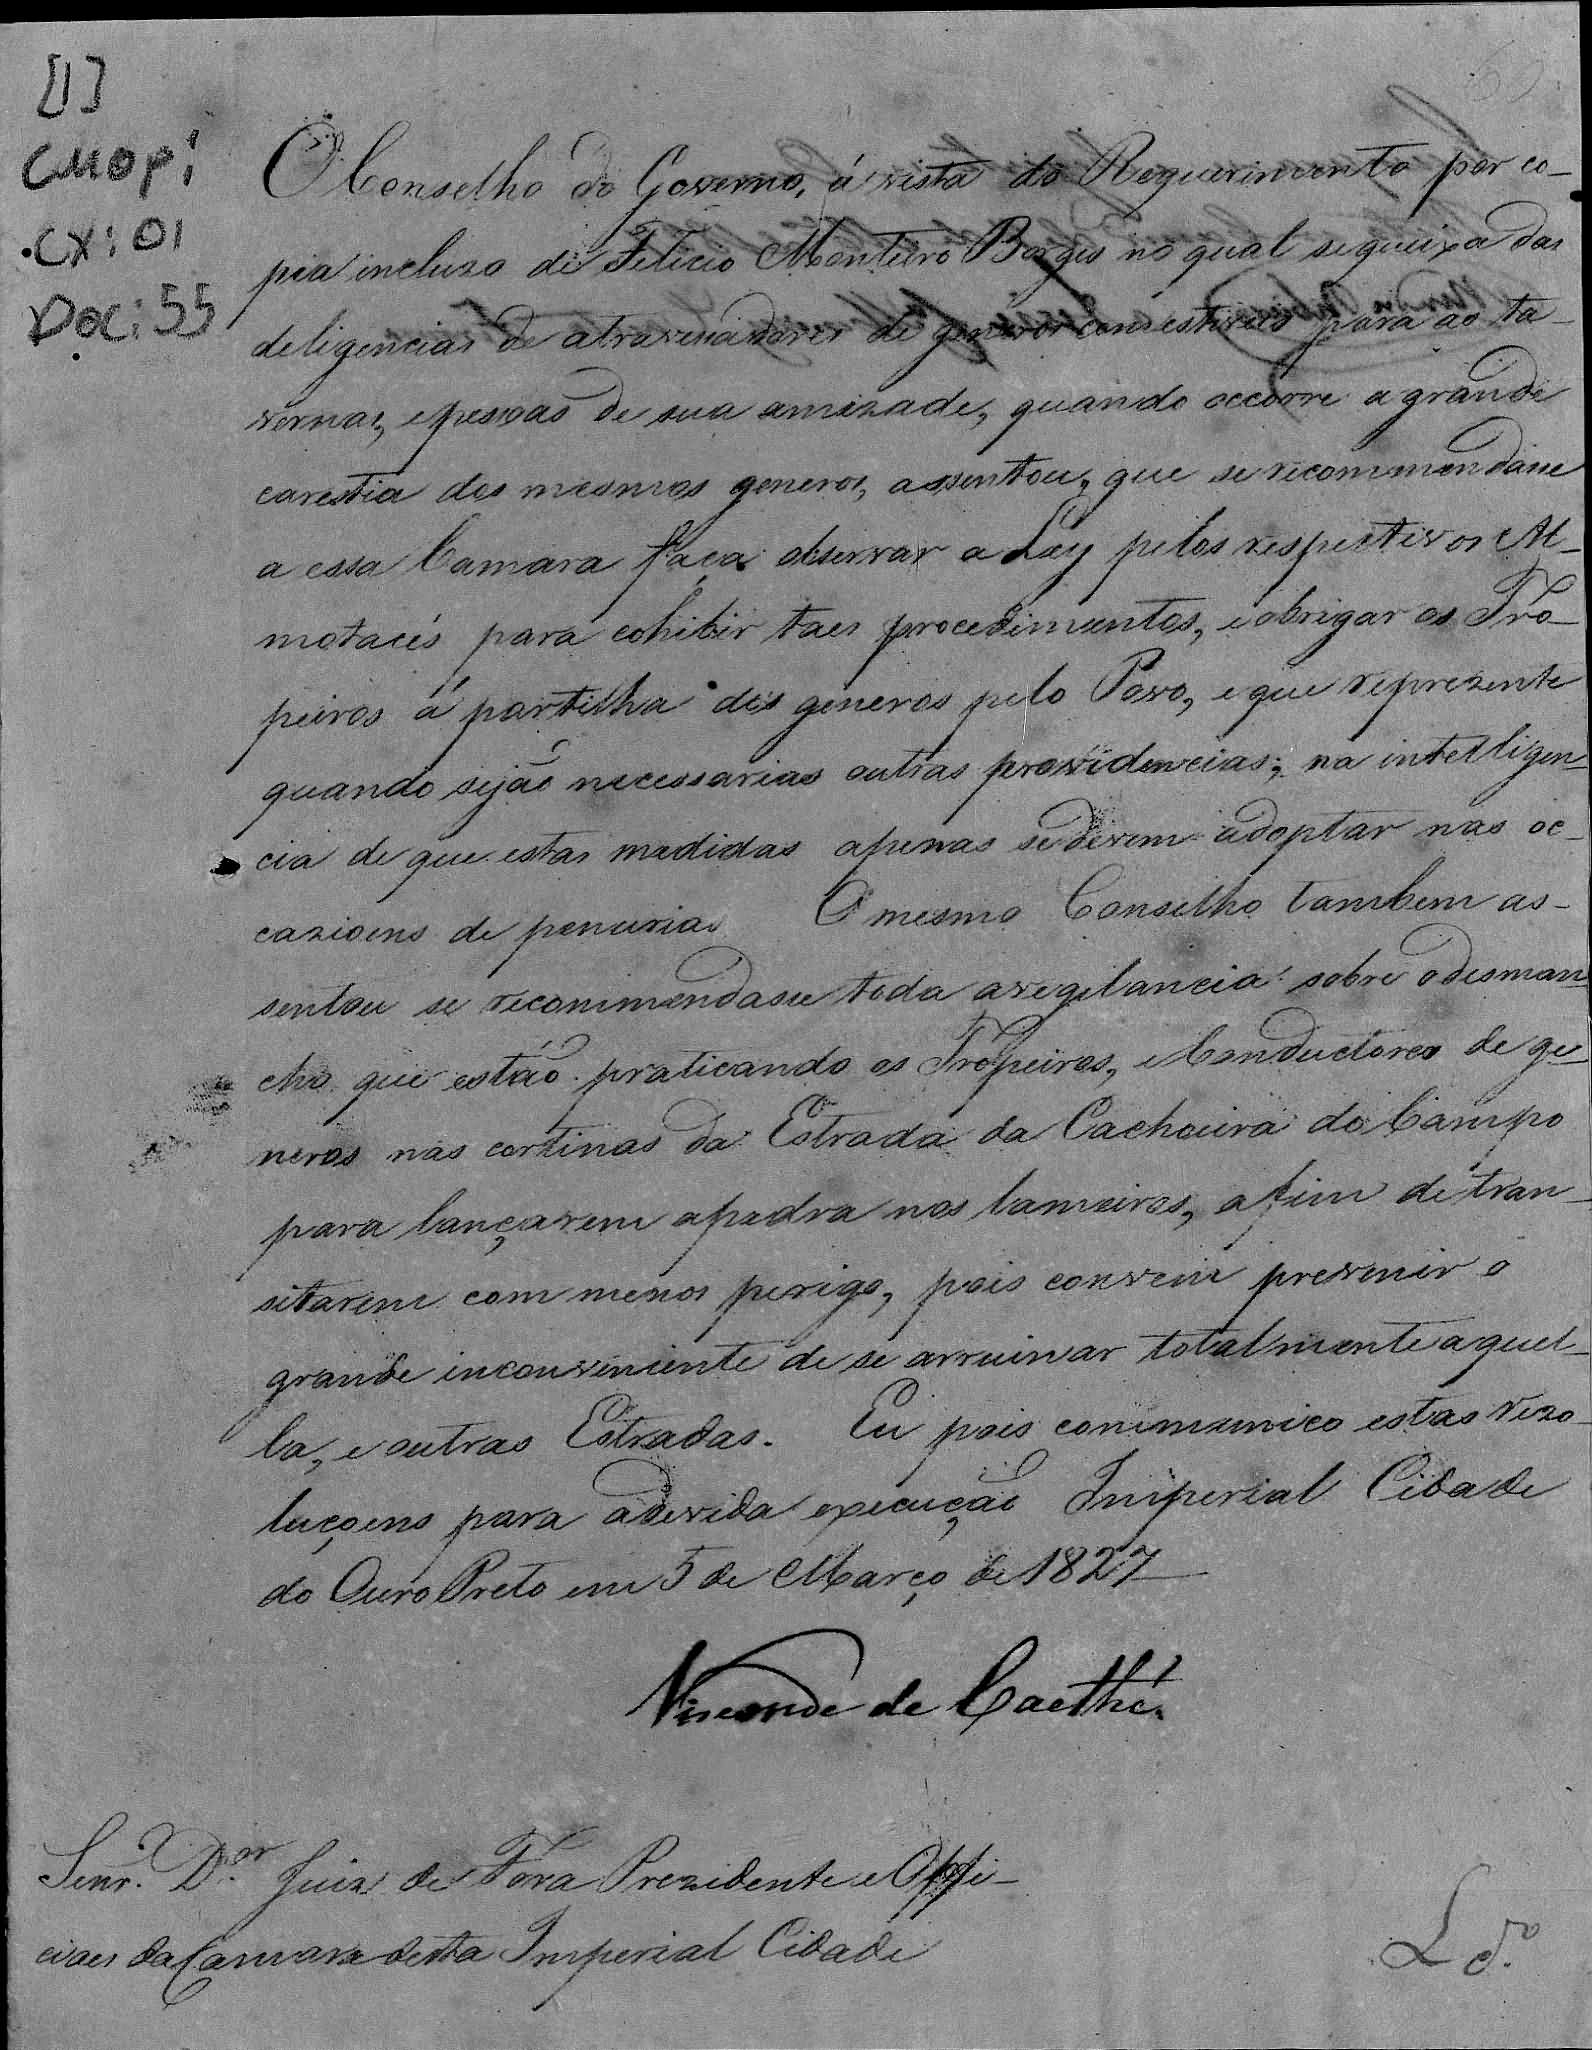 [1]
CMOP;
CX: 01
Doc: 55
O Conselho do Governo, á vista do Requerimento por co-
pia incluzo de Felicio Monteiro Borges no qual se queixa das
deligencias de atravessadores de generos comestiveis para as ta-
vernas, e pessoas de sua amizade, quando occorre a grande
carestia dos mesmos generos, assentou, que se recommendasse
a essa Camara faça observar a Ley pelos respectivos Al-
motacés para cohibir taes procedimentos, e obrigar os Tro-
peiros á partilha dos generos pelo Povo, e que reprezente
quando sejão necessarias outras providencias; na intelligen-
cia de que estas medidas apenas se devem adoptar nas oc-
cazioens de penuria. O mesmo Conselho tambem as-
sentou se recommendasse toda a vegilancia sobre o desman-
cho que estão praticando os Tropeiros, e Conductores de ge-
neros nas cortinas da Estrada da Cachoeira do Campo
para lançarem a pedra nos lameiros, a fim de tran-
sitarem com menos perigo, pois convem prevenir o
grande inconveniente de se arruinar totalmente aquel-
la, e outras Estradas. Eu pois communico estas rezo-
luçoens para a devida execução Imperial Cidade
do Ouro Preto em 5 de Março de 1827
Visconde de Caethé.
Senr. Dor. Juiz de Fora Prezidente e Offi-
ciaes da Camara desta Imperial Cidade